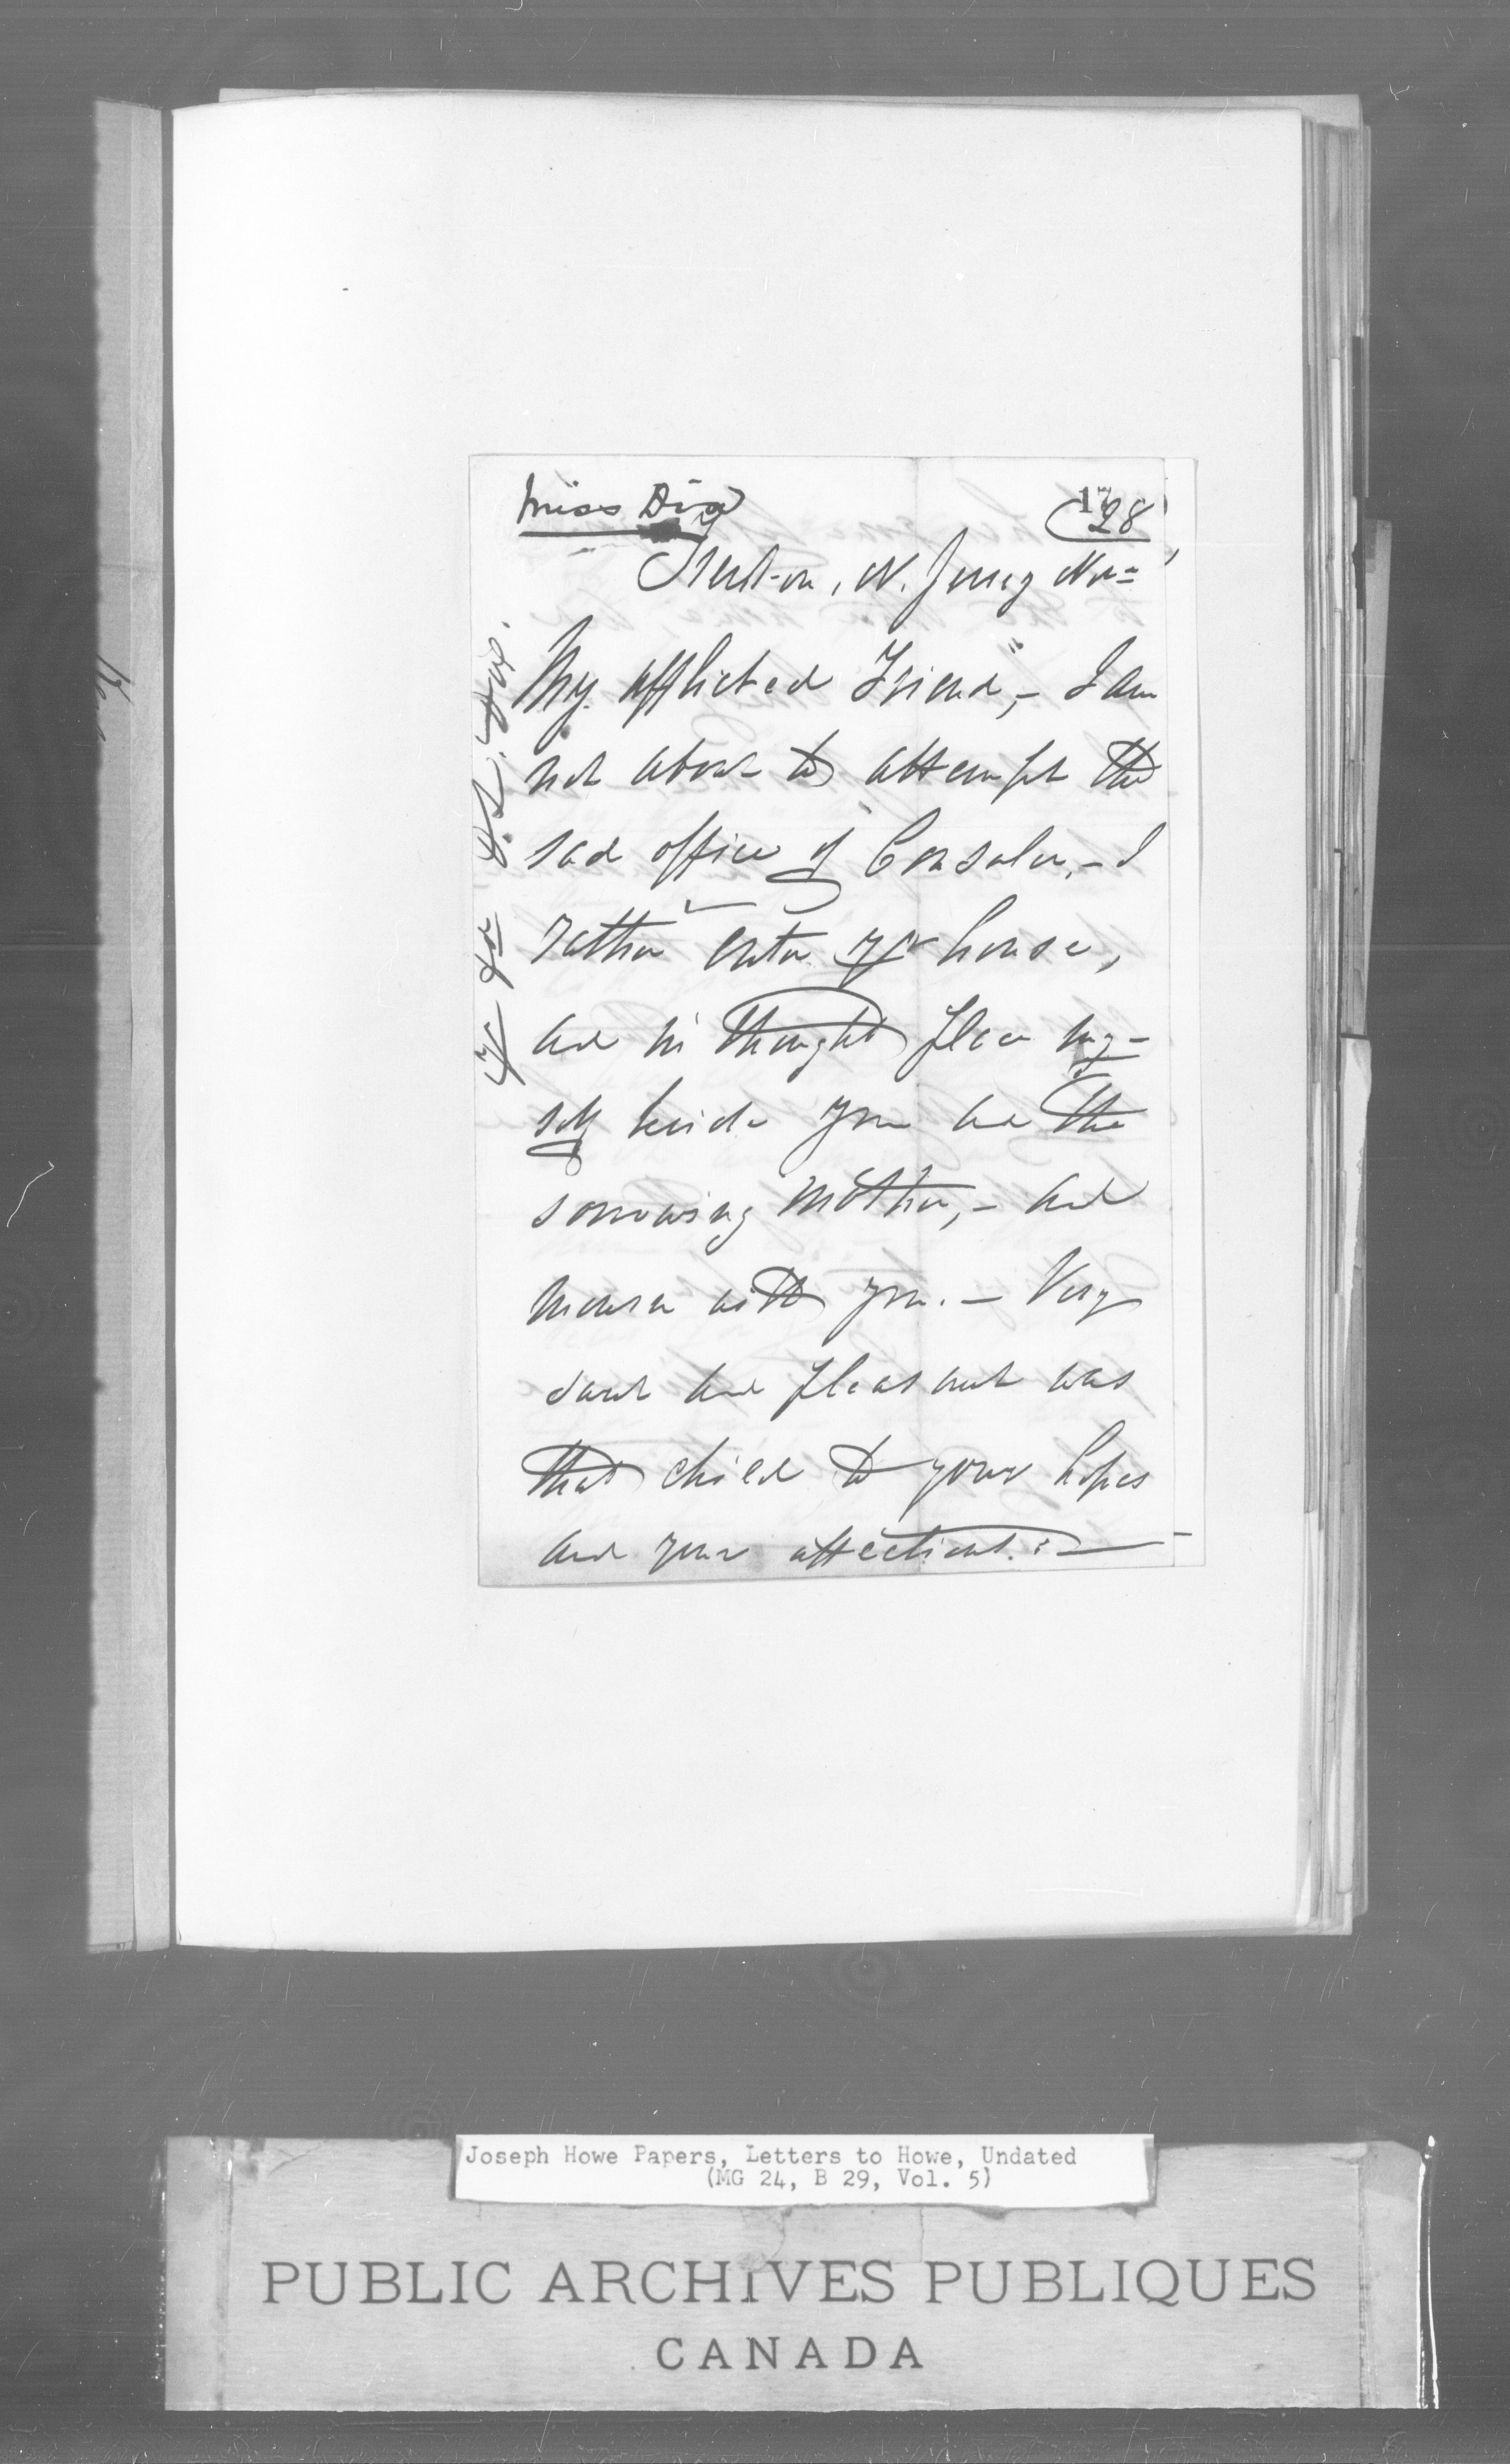 Miss Dix
17
28
Trenton, N. Jersey Nov=
My afflicted Friend, – I am
not about to attempt the
sad office of Consoler, – I
rather enter yr house,
and in thought place my-
self beside you and the
sorrowing Mother, – and
mourn with you. – Very
dear and pleasant was
that child to your hopes
and your affections. : —
Joseph Howe Papers, Letters to Howe, Undated
(MG 24, B 29, Vol. 5)
PUBLIC ARCHIVES PUBLIQUES
CANADA